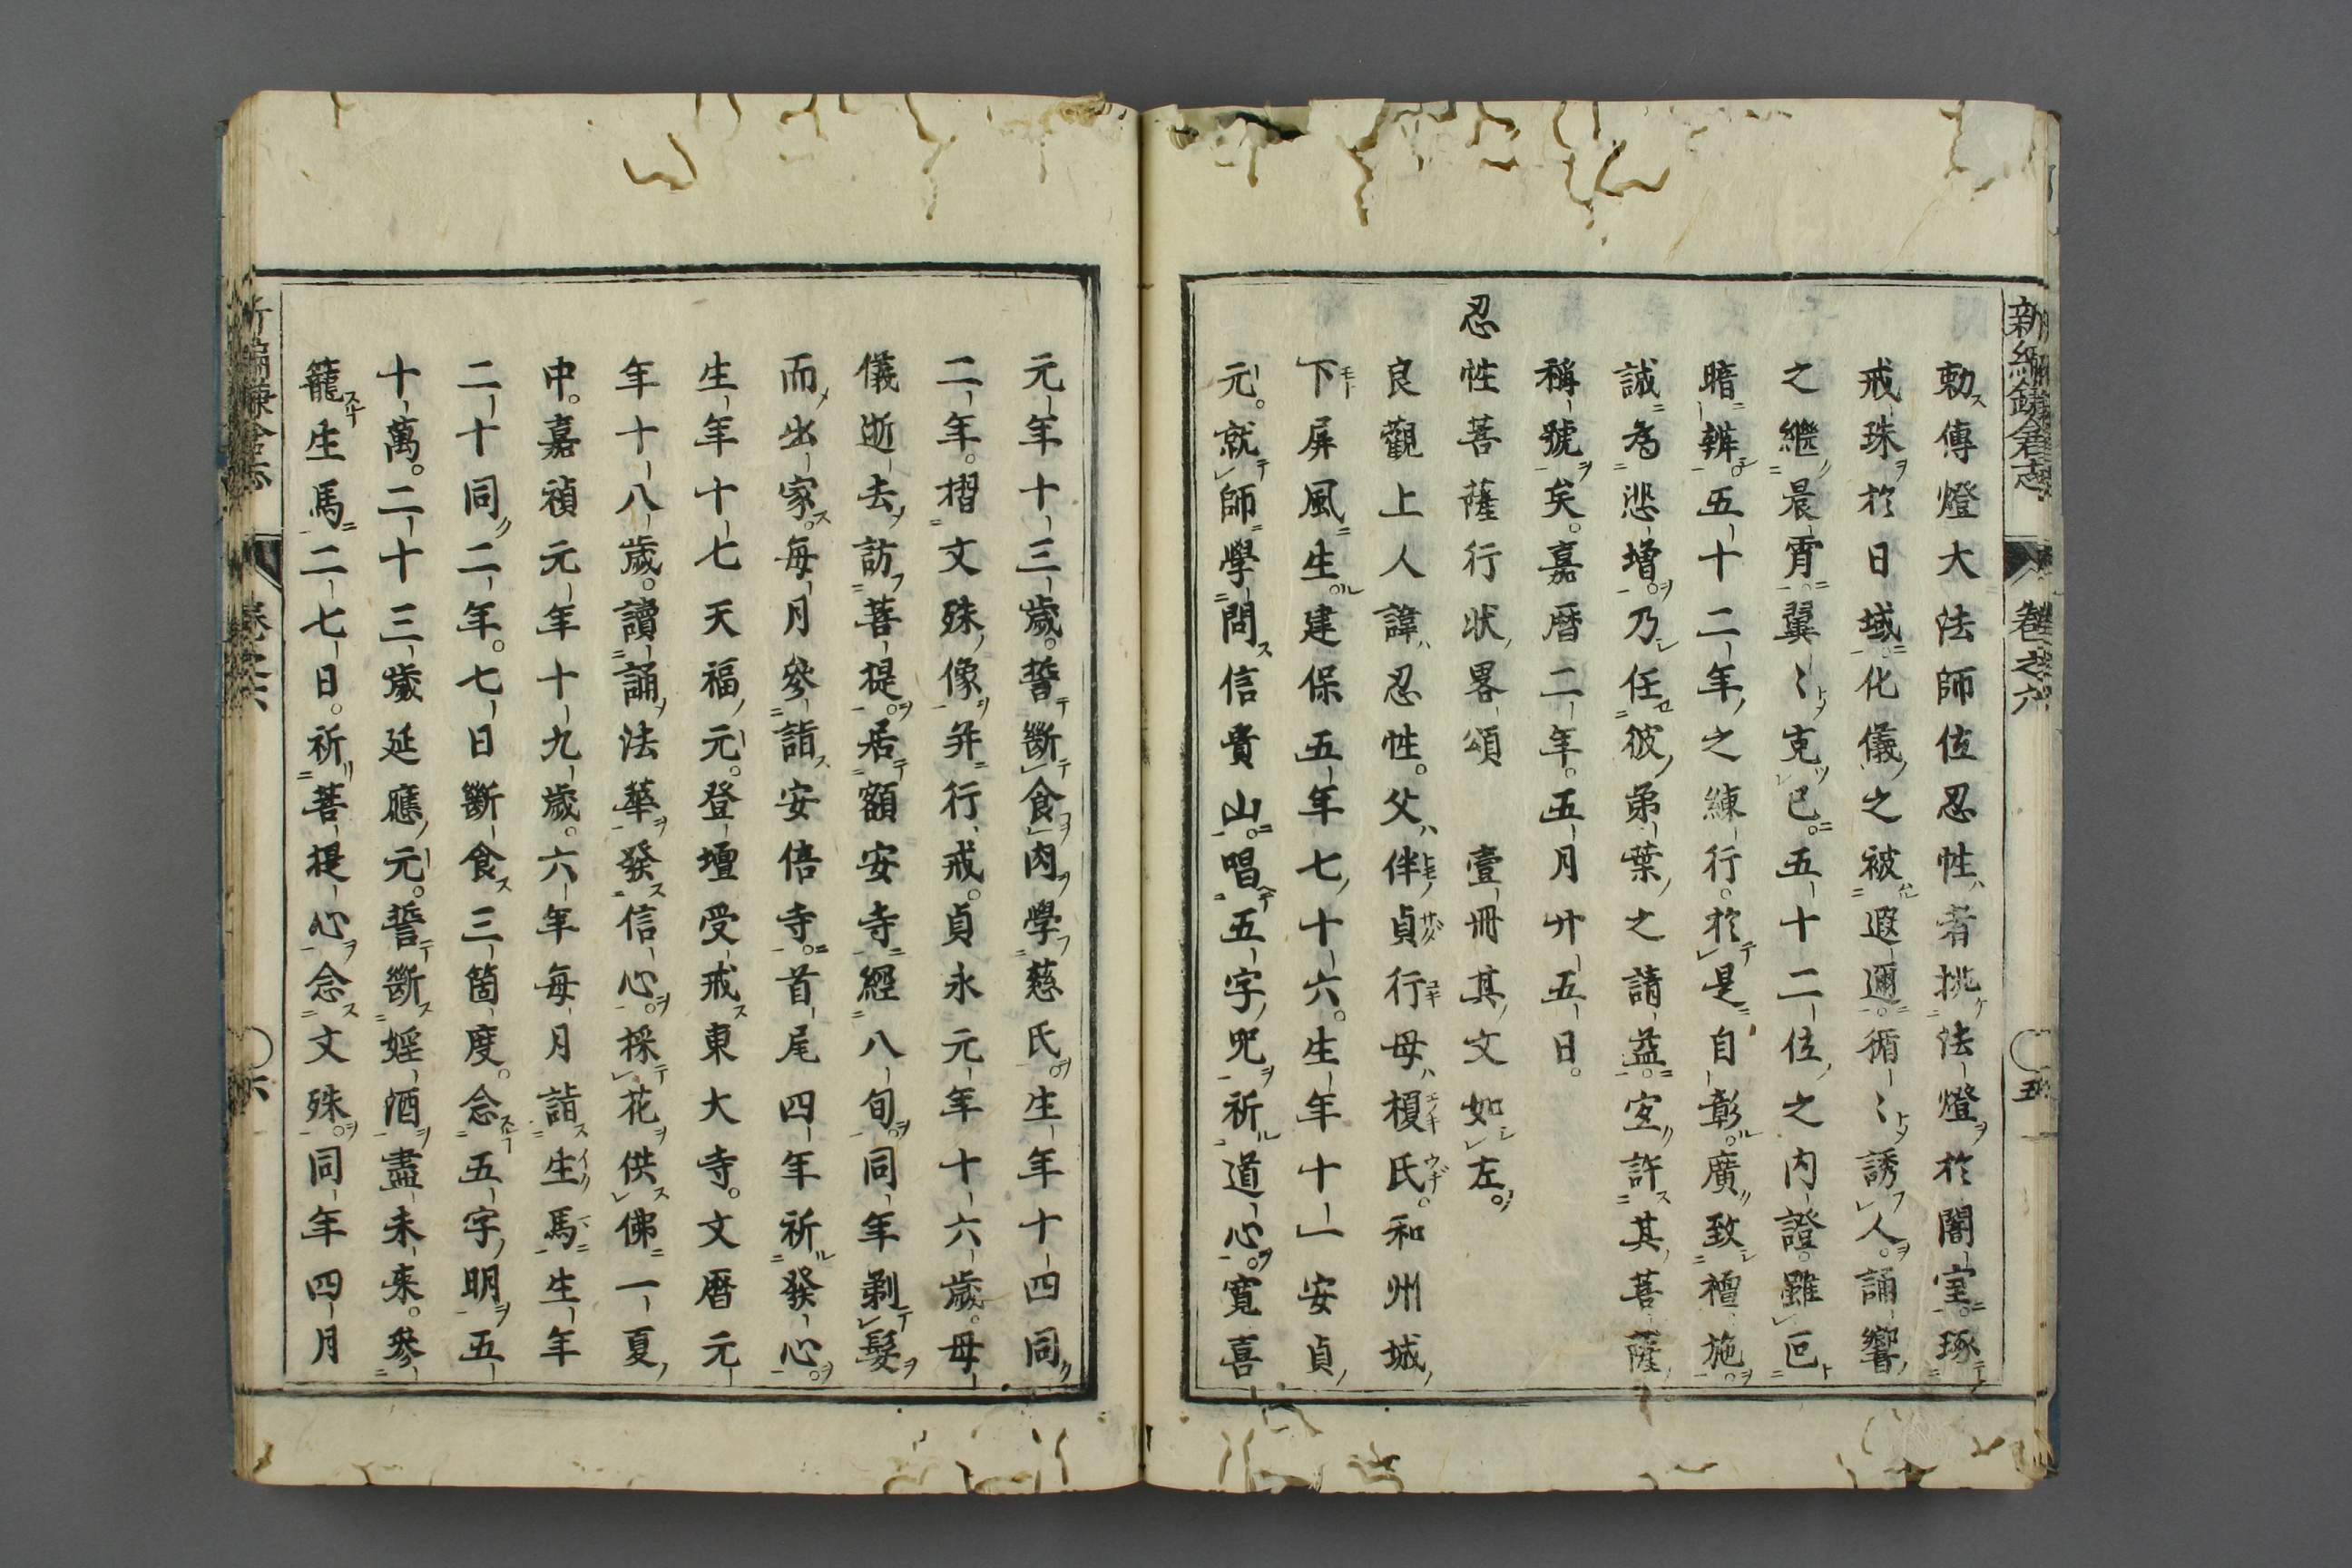 新編鎌倉志 卷之六 五
勅傳燈大法師位忍性者挑法燈於闇室。琢
戒珠於日域。化儀之被遐邇。循〻誘人。誦響
之繼晨霄。翼〻克己。五十二位之内證。雖叵
暗辨。五十二年之練行。於是自彰。廣致檀施。
誠為悲增。乃任彼弟葉之請益。宜許其菩薩
稱號矣。嘉暦二年。五月廿五日。
忍性菩薩行状畧頌 壹冊其文如左。
良觀上人諱忍性。父伴貞行母榎氏。和州城
下屏風生。建保五年七十六。生年十一安貞
元。就師學問信貴山。唱五字呪祈道心。寛喜
元年十三歳。誓斷食肉學慈氏。生年十四同
二年。摺文殊像并行戒。貞永元年十六歳。母
儀逝去訪菩提。居額安寺經八旬。同年剃髮
而出家。毎月參詣安倍寺。首尾四年祈發心。
生年十七天福元。登壇受戒東大寺。文暦元
年十八歳。讀誦法華發信心。採花供佛一夏
中。嘉禎元年十九歳。六年毎月詣生馬生年
二十同二年。七日斷食三箇度。念五字明五
十萬。二十三歳延應元。誓斷婬酒盡未來。參
籠生馬二七日。祈菩提心念文殊。同年四月
新編鎌倉志 卷之六 六